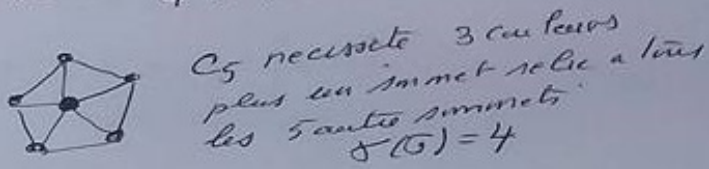 C5 necessite 3 couleurs
plus un sommet relie a tous
les 5 autre sommets
γ(G) = 4